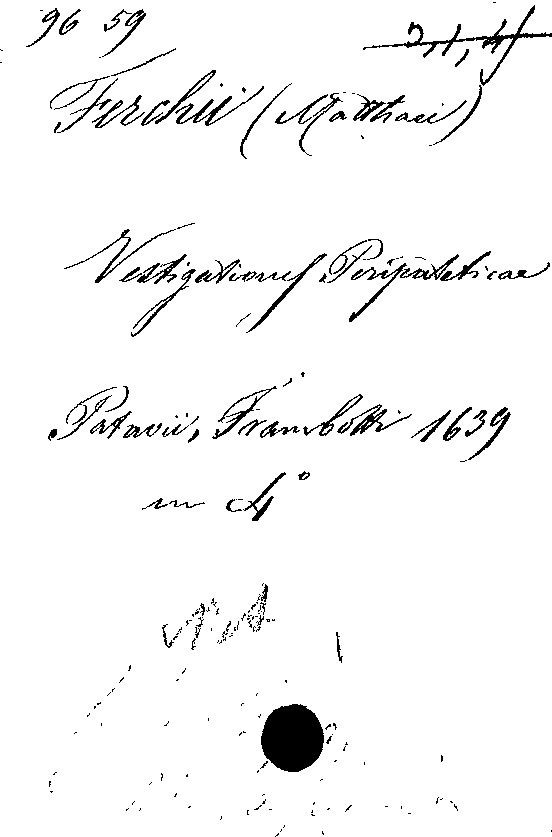 96 59
Ferchii (Matthaei)
Vestigationes Peripateticae
Patavii, Frambotti 1639
in 4°